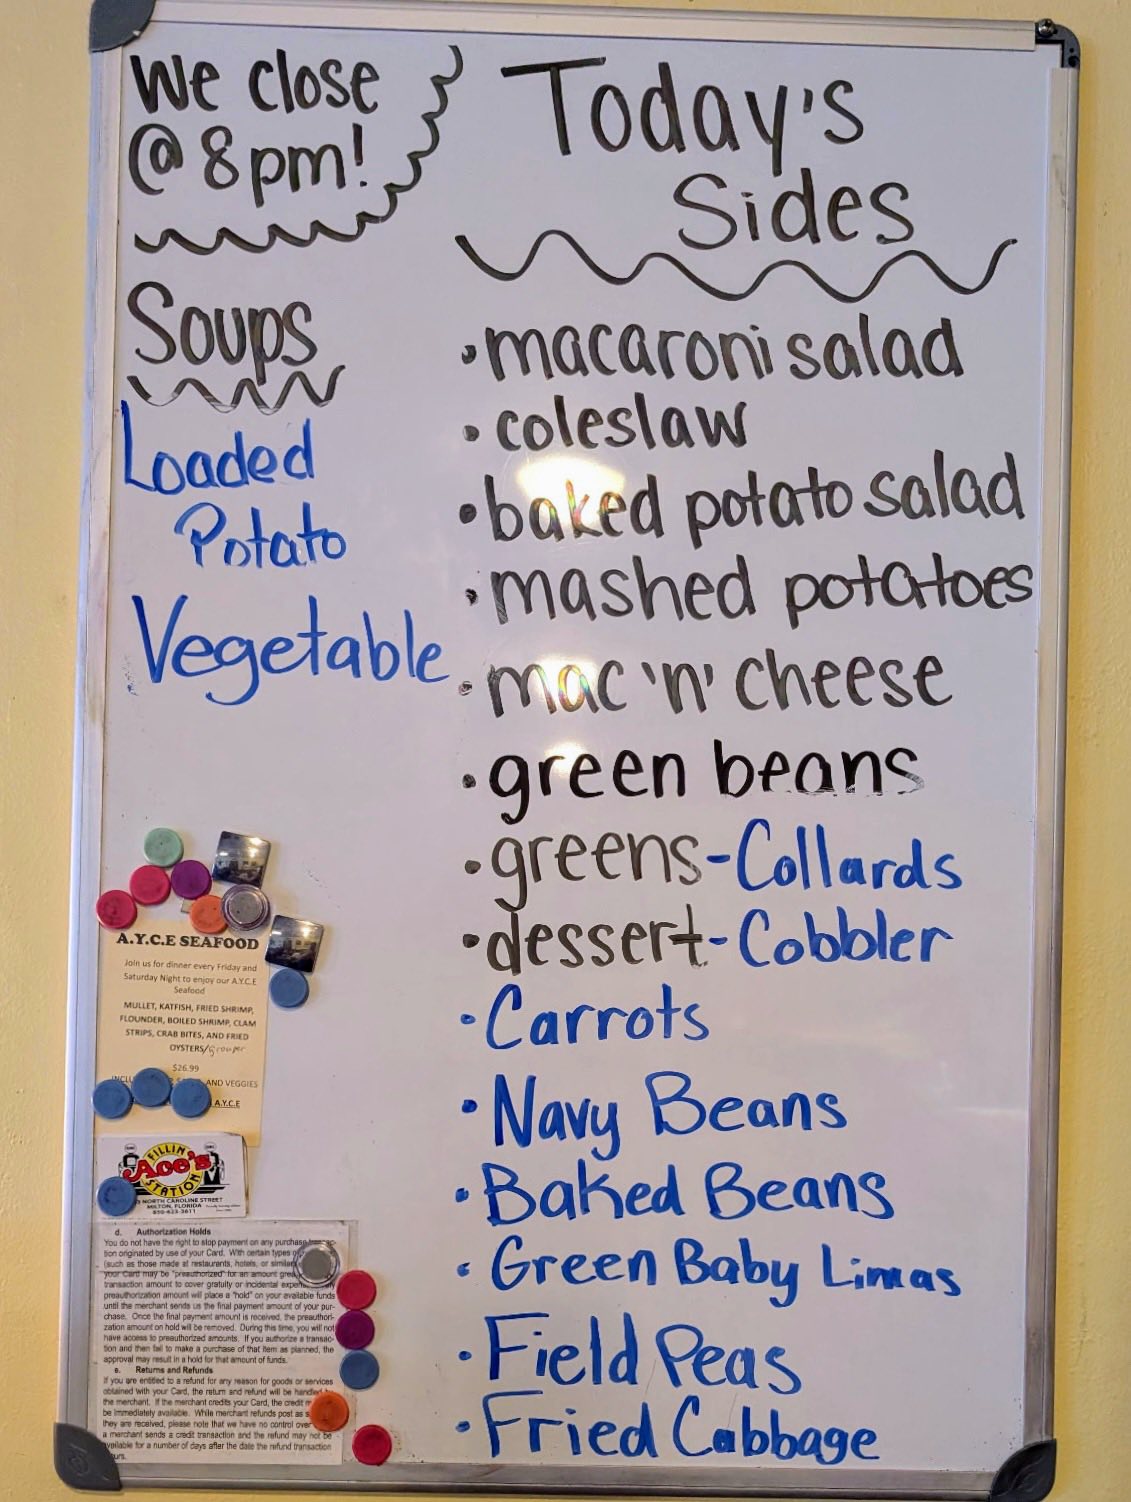 We close
@ 8pm!
Soups
Loaded
Potato
Vegetable
Today's
Sides
• macaroni salad
• coleslaw
• baked potato salad
• mashed potatoes
• mac 'n' cheese
• green beans
• greens - Collards
• dessert - Cobbler
• Carrots
• Navy Beans
• Baked Beans
• Green Baby Limas
• Field Peas
• Fried Cabbage
A.Y.C.E SEAFOOD
Join us for dinner every Friday and
Saturday Night to enjoy our A.Y.C.E
Seafood
MULLET, KATFISH, FRIED SHRIMP,
FLOUNDER, BOILED SHRIMP, CLAM
STRIPS, CRAB BITES, AND FRIED
OYSTERS/Grouper
$26.99
AND VEGGIES
A.Y.C.E
FILLIN
Ace's
STATION
NORTH CAROLINE STREET
MILTON, FLORIDA
850-623-3611
d. Authorization Holds
You do not have the right to stop payment on any purchase
tion originated by use of your Card. With certain types
(such as those made at restaurants, hotels, or similar
your Card may be "preauthorized" for an amount
transaction amount to cover gratuity or incidental
preauthorization amount will place a "hold" on your available funds
until the merchant sends us the final payment amount of your pur-
chase. Once the final payment amount is received, the preauthori-
zation amount on hold will be removed. During this time, you will not
have access to preauthorized amounts. If you authorize a transac-
tion and then fail to make a purchase of that item as planned, the
approval may result in a hold for that amount of funds.
e. Returns and Refunds
If you are entitled to a refund for any reason for goods or services
obtained with your Card, the return and refund will be handled
the merchant. If the merchant credits your Card, the credit
be immediately available. While merchant refunds post as
they are received, please note that we have no control over
a merchant sends a credit transaction and the refund may not be
available for a number of days after the date the refund transaction